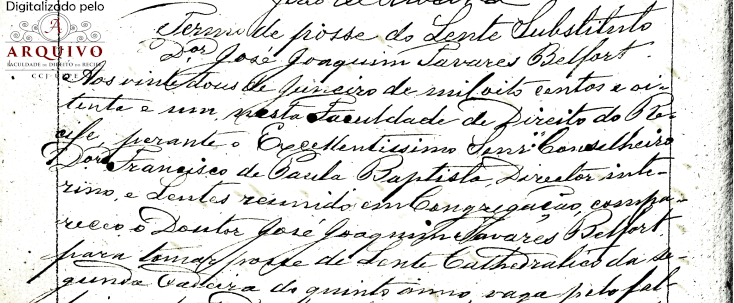 Digitalizado pelo
ARQUIVO
FACULDADE DE DIREITO DO RECIFE
CCJ-UFPE
João de Oliveira
Termo de posse do Lente Substituto
Dor José Joaquim Tavares Belfort.
Aos vinte dous de Janeiro de mil oito centos e oi-
tenta e um, nesta Faculdade de Direito do Re-
cife, perante o Excellentissimo Senr Conselheiro
Dor Francisco de Paula Baptista, Director inte-
rino, e Lentes reunido em Congregação, compa-
receo o Doutor José Joaquim Tavares Belfort
para tomar posse de Lente Cathedratico da se-
gunda Cadeira do quinto anno, vaga pelo fal-